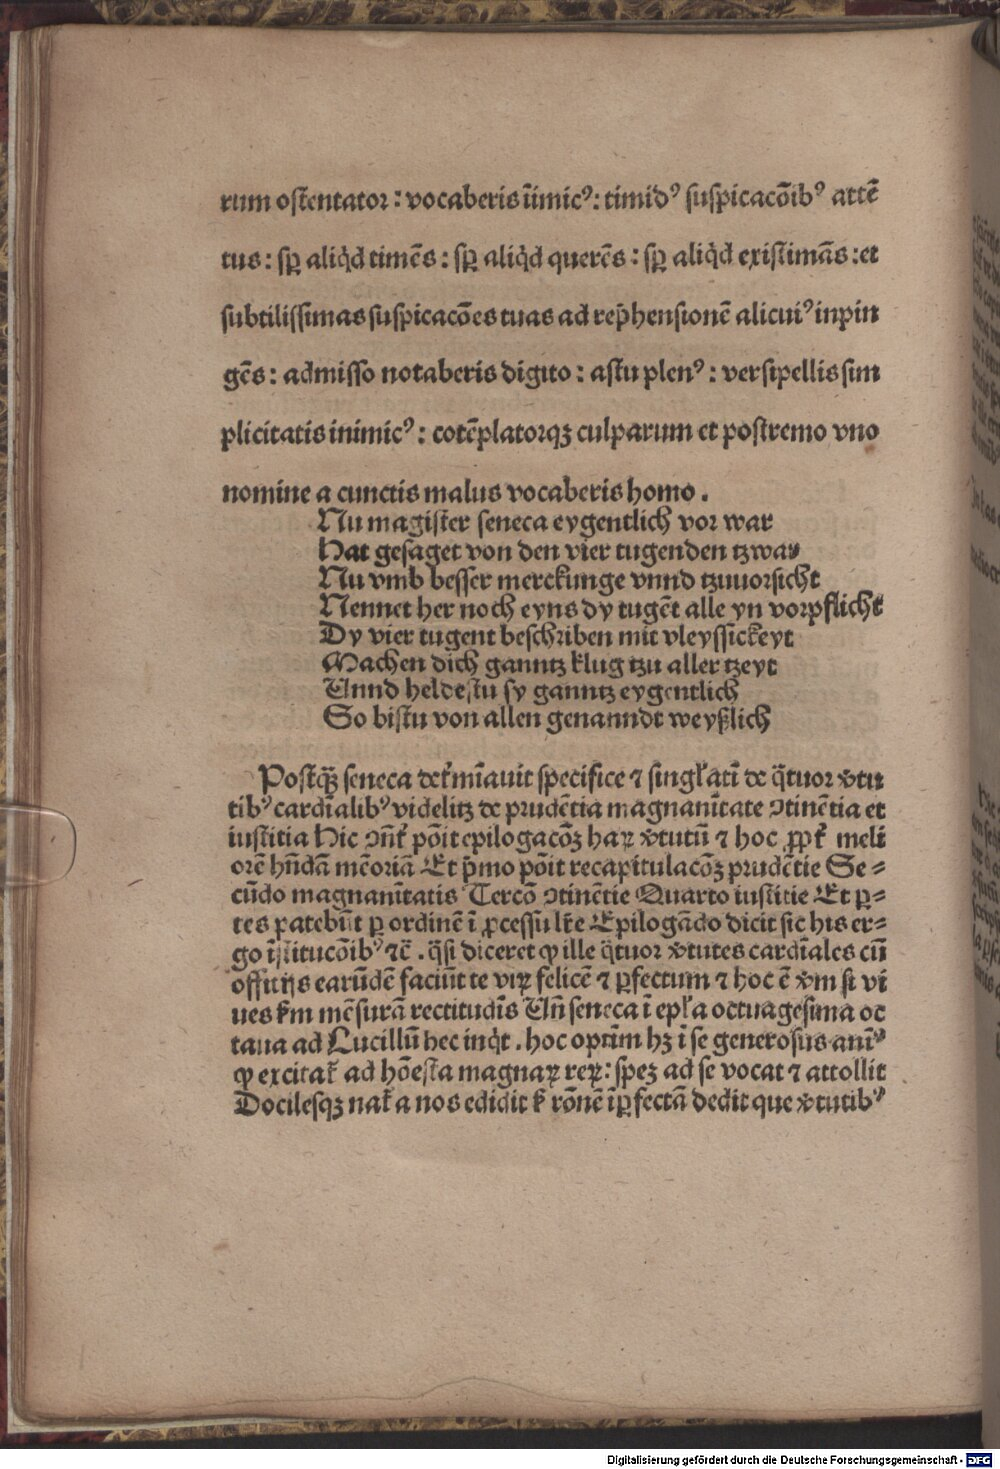 rum ostentator : vocaberis īimicꝰ : timidꝰ suspicacōibꝰ attē
tus : sꝑ aliq̇d timēs : sꝑ aliq̇d querēs : sꝑ aliq̇d existimās : et
subtilissimas suspicacōes tuas ad rep̄hensionē alicuiꝰ inpin
gēs : admisso notaberis digito : astu plenꝰ : versipellis sim
plicitatis inimicꝰ : cotēplatorqꝫ culparum et postremo vno
nomine a cunctis malus vocaberis homo .
Nu magister seneca eygentlich vor war
Hat gesaget von den vier tugenden tzwar
Nu vmb besser merckunge vnnd tzuuorsicht
Nennet her noch eyns dy tugēt alle yn vorpflicht
Dy vier tugent beschriben mit vleyssickeyt
Machen dich ganntz klug tzu aller tzeyt
Vnnd heldestu sy ganntz eygentlich
So bistu von allen genanndt weyßlich
Postq̄ꝫ seneca det̄miāuit specifice ⁊ singl'atī de q̄tuor v̄tu
tibꝰ cardīalibꝰ videlitꝫ de prudētia magnanītate ꝯtinētia et
iustitia Hic ꝯn̄t̄ pōit epilogacōꝫ haꝝ v̄tutū ⁊ hoc ꝓpt̄ meli
orē hn̄dā mēoriā Et p̄mo pōit recapitulacōꝫ prudētie Se⸗
cūdo magnanītatis Tercō ꝯtinētie Quarto iustitie Et ꝑ⸗
tes patebūt ꝑ ordinē ī ꝓcessu lr̄e Epilogādo dicit sic his er⸗
go īstitucōibꝰ ⁊c̄ . q̄si diceret ꝙ ille q̄tuor v̄tutes cardīales cū
officijs earūdē faciūt te viꝝ felicē ⁊ ꝑfectum ⁊ hoc ē v̄m si vi
ues s̄m mēsurā rectitudīs Vn̄ seneca ī epl'a octuagesima oc
taua ad Lucillū hec inq̇t . hoc optīm hꝫ ī se generosus anīꝰ
ꝙ excitat̄ ad hōesta magnaꝝ reꝝ : speꝫ ad se vocat ⁊ attollit
Docilesqꝫ nat̄a nos edidit ⁊ rōnē īꝑfectā dedit que v̄tutibꝰ
Digitalisierung gefördert durch die Deutsche Forschungsgemeinschaft - DFG